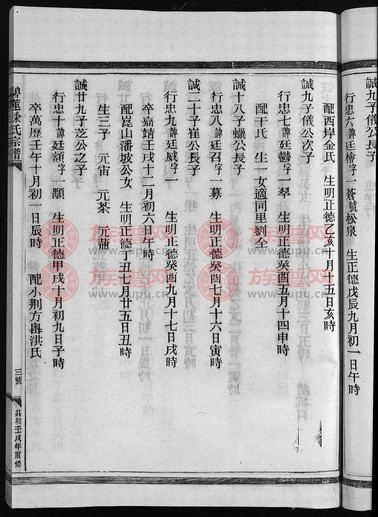 誠九子儀公長子
行忠六諱廷檜字一蒼號松泉 生正德戊辰九月初一日午時
配西岸金氏 生明正德乙亥十月十五日亥時
誠九子儀公次子
行忠七諱廷鬱字一翠 生明正德癸酉五月十四申時
配干氏 生一女適同里劉全
誠十八子蠟公長子
行忠八諱廷召字一募 生明正德癸酉七月十六日寅時
誠二十子崔公長子
行忠九諱廷威字一 生明正德癸酉九月十七日戌時
卒嘉靖壬戌十二月初六日午時
配崑山潘坡公女 生明正德丁丑七月廿五日丑時
生三子 元宙 元茶 元蒲
誠廿九子芝公之子
行忠十諱廷額字一顯 生明正德甲戌十月初九日子時
卒萬歷壬午十月初一日辰時 配小荆方與洪氏
碧蓮徐氏宗譜
三號
民國壬戌年重修
族譜网